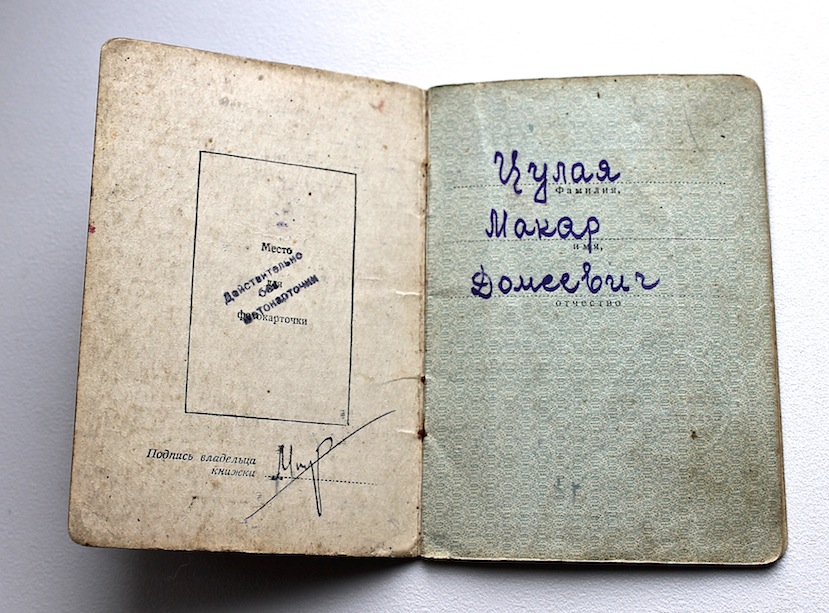 Место
для
фотокарточки
Действительно
без
фотокарточки
Подпись владельца
книжки
Цулая
Фамилия,
Макар
имя,
Домеевич
отчество